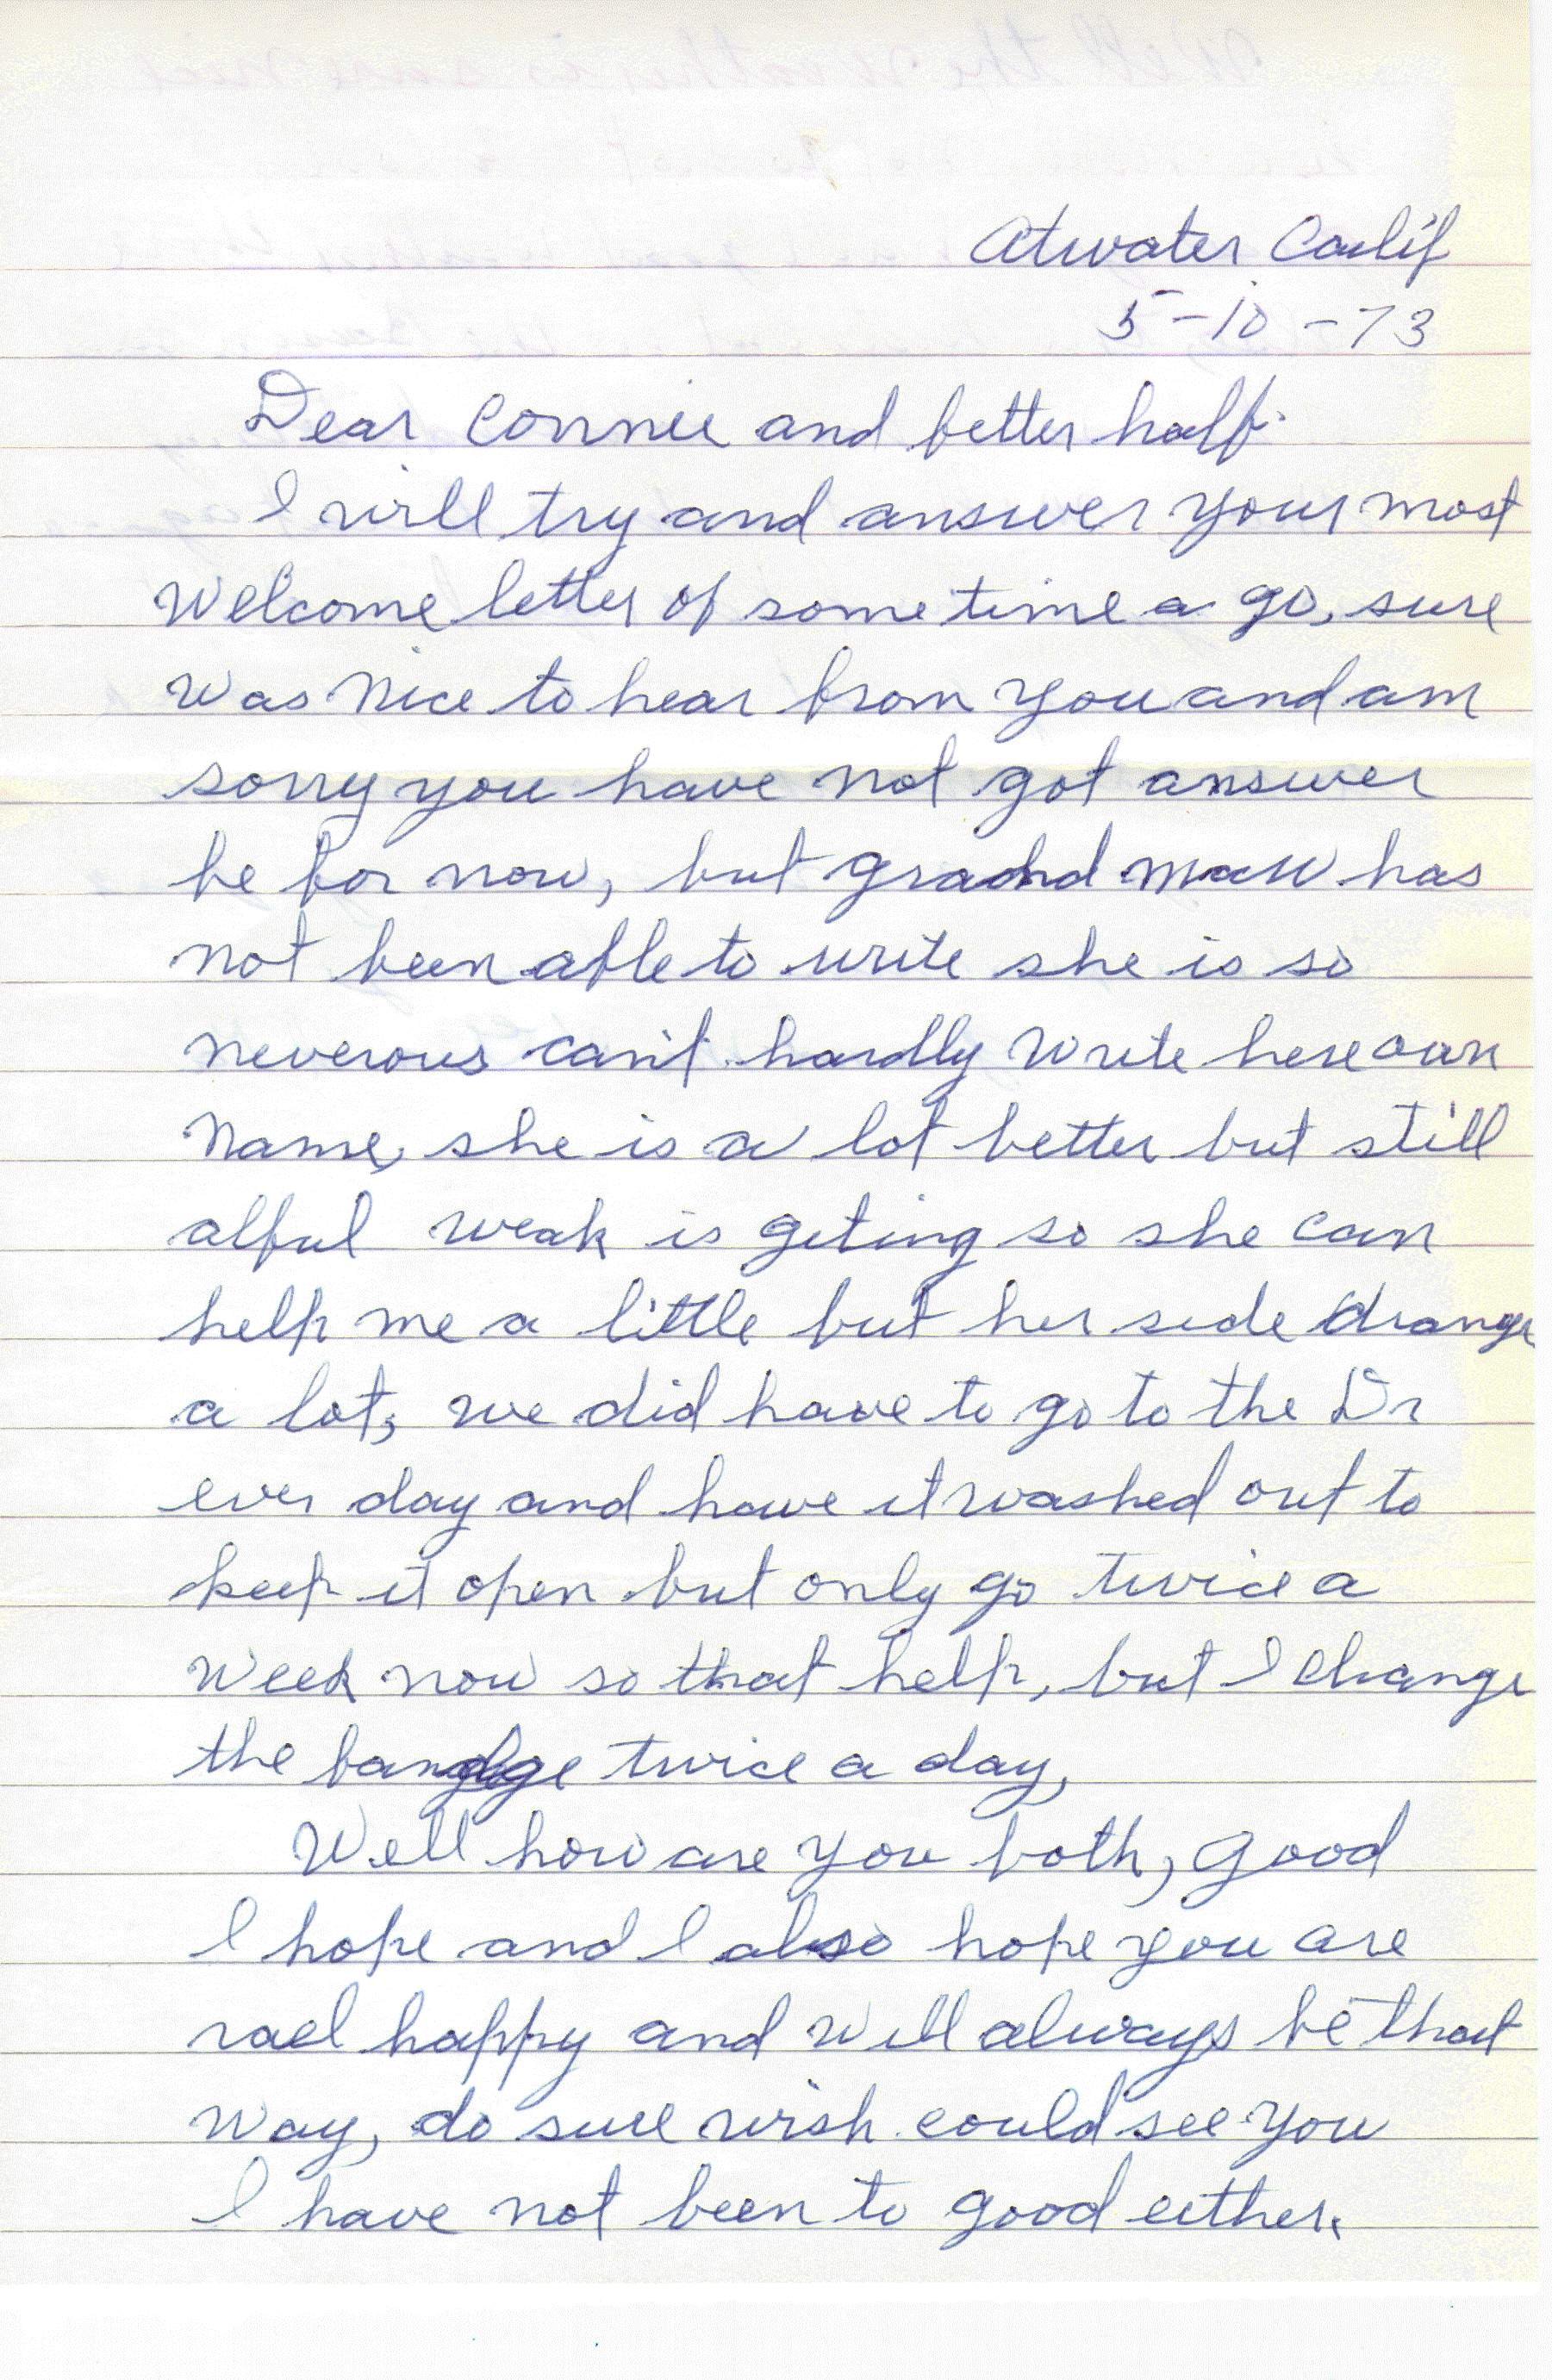 Atwater Calif
5-10-73
Dear Connie and better half.
I will try and answer your most
welcome letter of some time a go, sure
was nice to hear from you and am
sorry you have not got answer
be for now, but grand maw has
not been able to write she is so
neverous can't hardly write here own
name, she is a lot better but still
alful weak is geting so she can
help me a little but her side
a lot, we did have to go to the Dr
ever day and have it washed out to
keep it open but only go twice a
week now so that help, but I change
the twice a day,
Well how are you both, good
I hope and I also hope you are
rael happy and will always be that
way, do sure wish could see you
I have not been to good either.